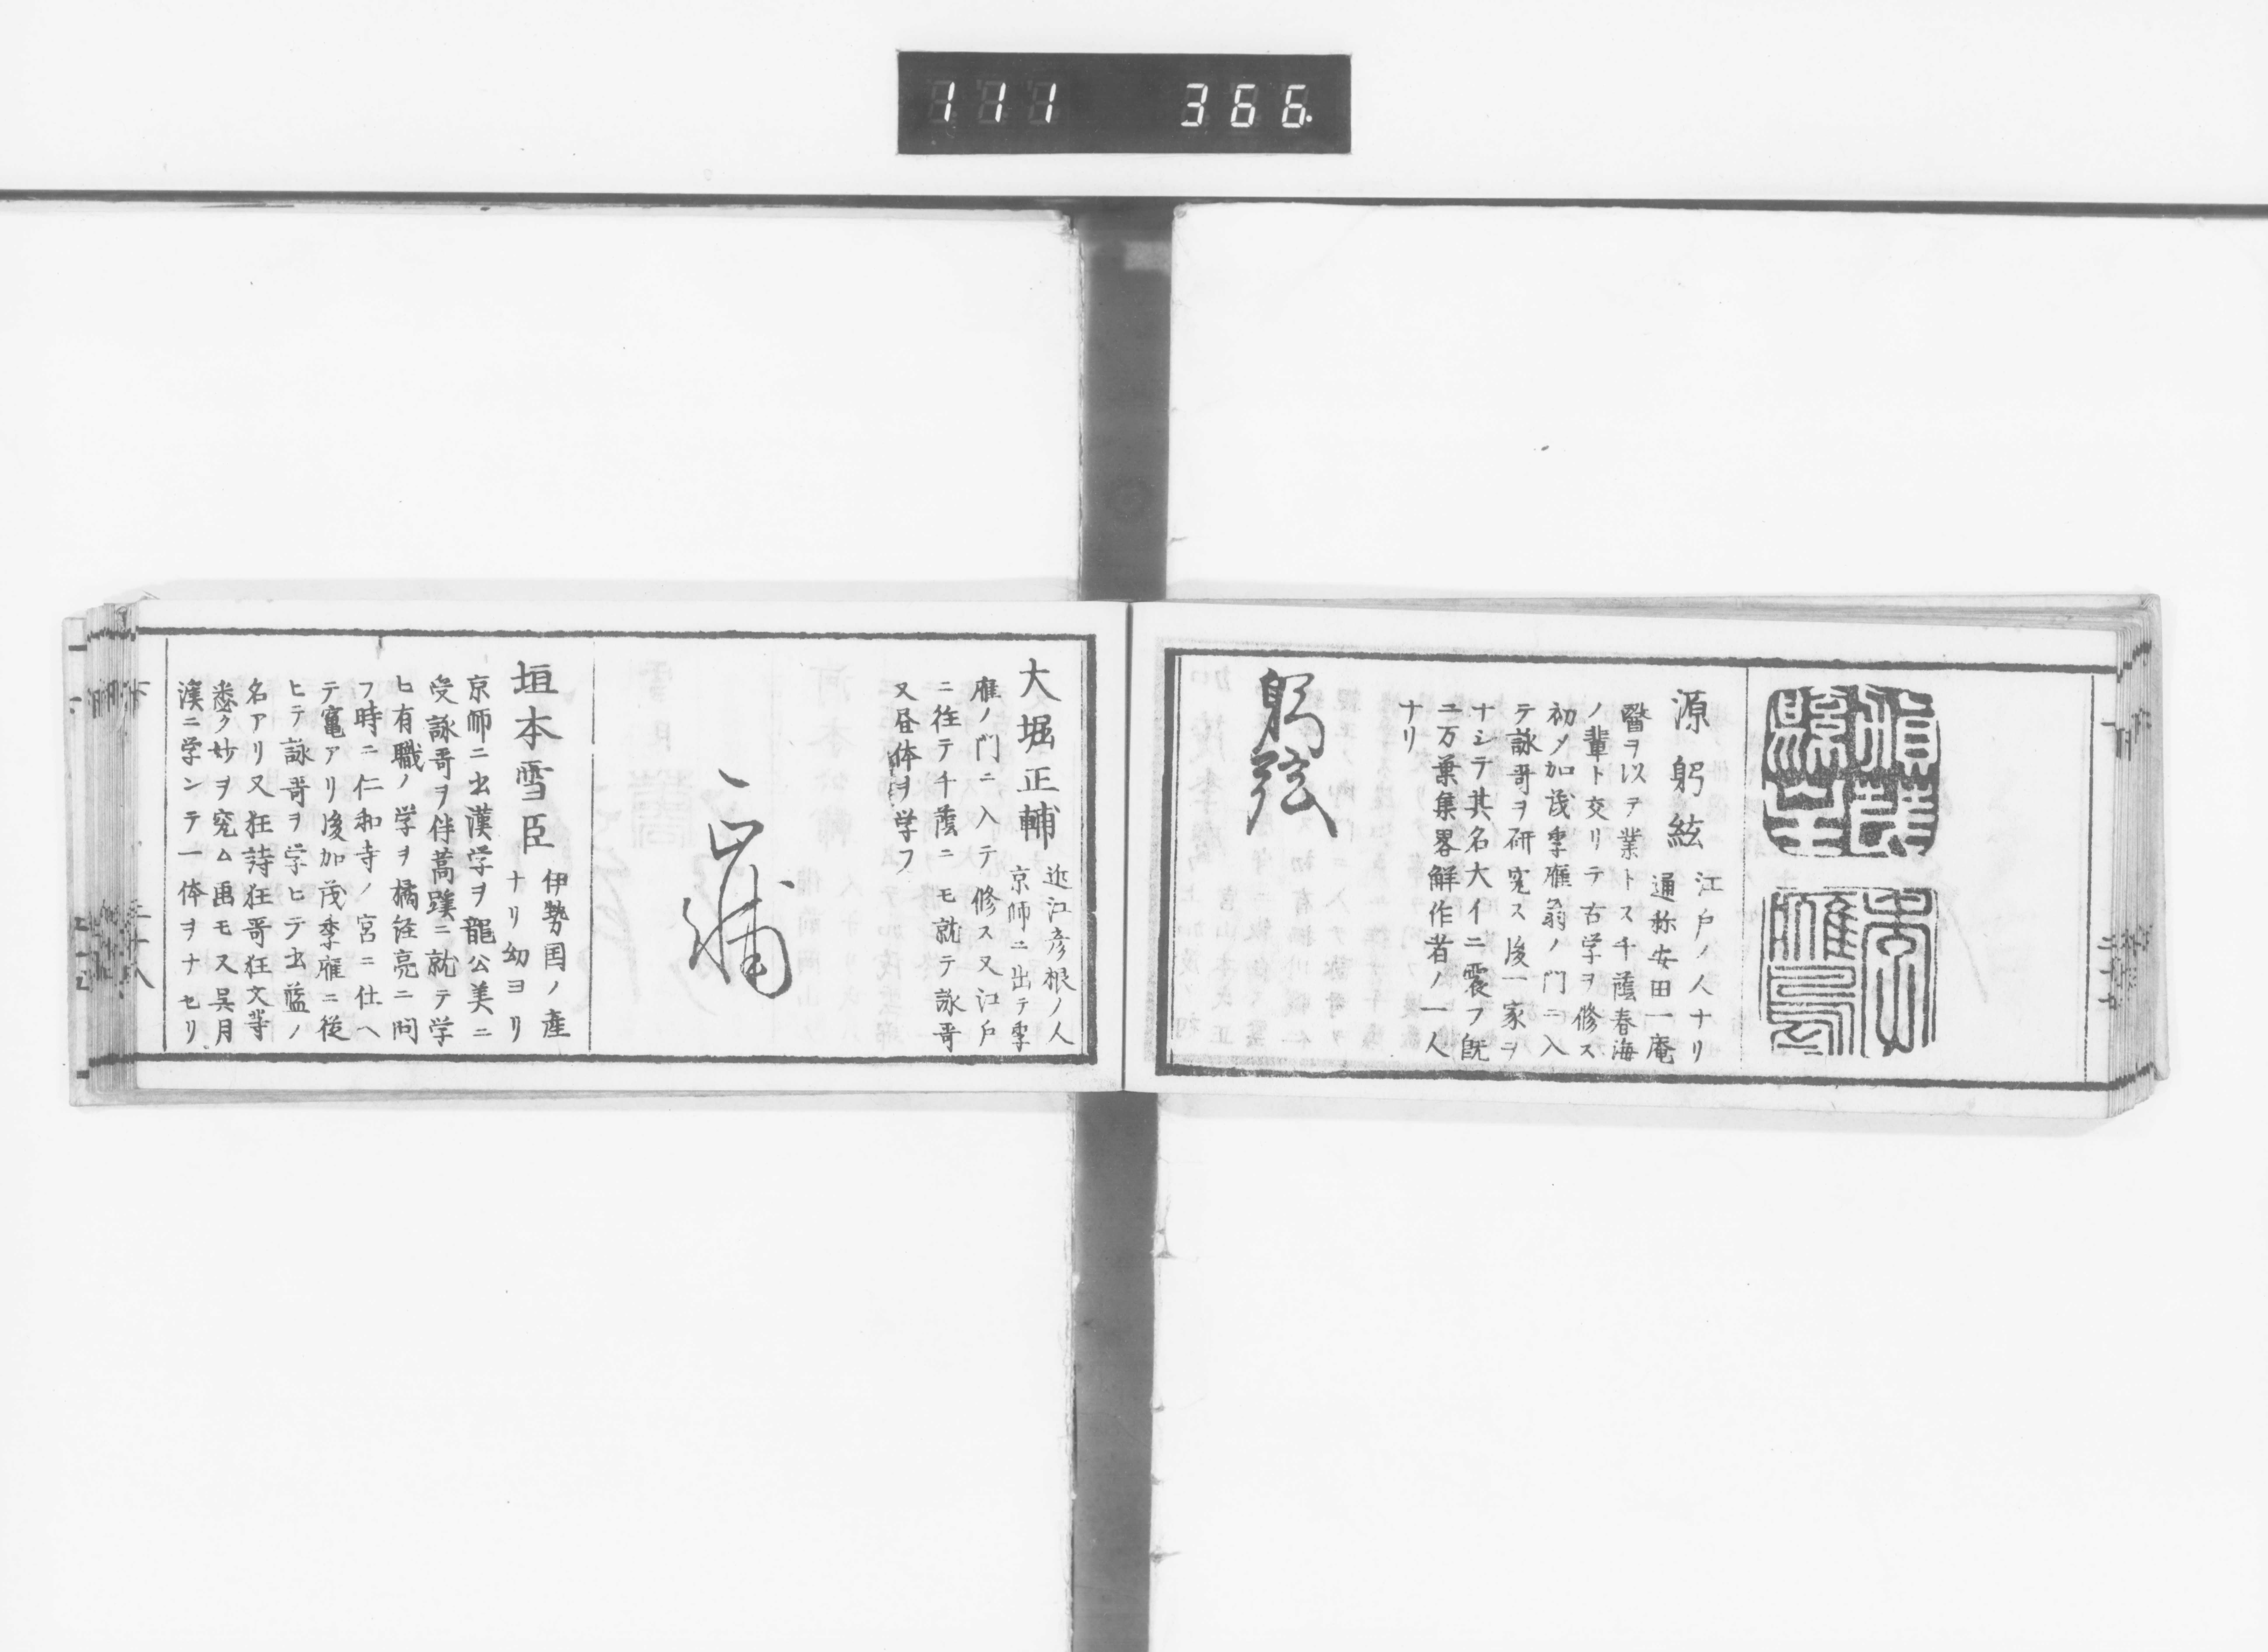 111 366
源躬絃 江戸ノ人ナリ
通称安田一庵
醫ヲ以テ業トス千蔭春海
ノ輩ト交リテ古学ヲ修ス
初メ加茂季鷹翁ノ門ニ入
テ詠哥ヲ研究ス後一家ヲ
ナシテ其名大イニ震フ既
ニ万葉集畧解作者ノ一人
ナリ
躬弦
大堀正輔 近江彦根ノ人
京師ニ出テ季
雁ノ門ニ入テ修ス又江戸
ニ往テ千蔭ニモ就テ詠哥
又昼体ヲ学フ
正輔
垣本雪臣 伊勢国ノ産
ナリ幼ヨリ
京師ニ出漢学ヲ龍公美ニ
受詠哥ヲ伴蒿蹊ニ就テ学
ヒ有職ノ学ヲ橘経亮ニ問
フ時ニ仁和寺ノ宮ニ仕ヘ
テ寵アリ後加茂季雁ニ従
ヒテ詠哥ヲ学ヒテ出藍ノ
名アリ又狂詩狂哥狂文等
悉ク妙ヲ究ム画モ又呉月
渓ニ学ンテ一体ヲナセリ